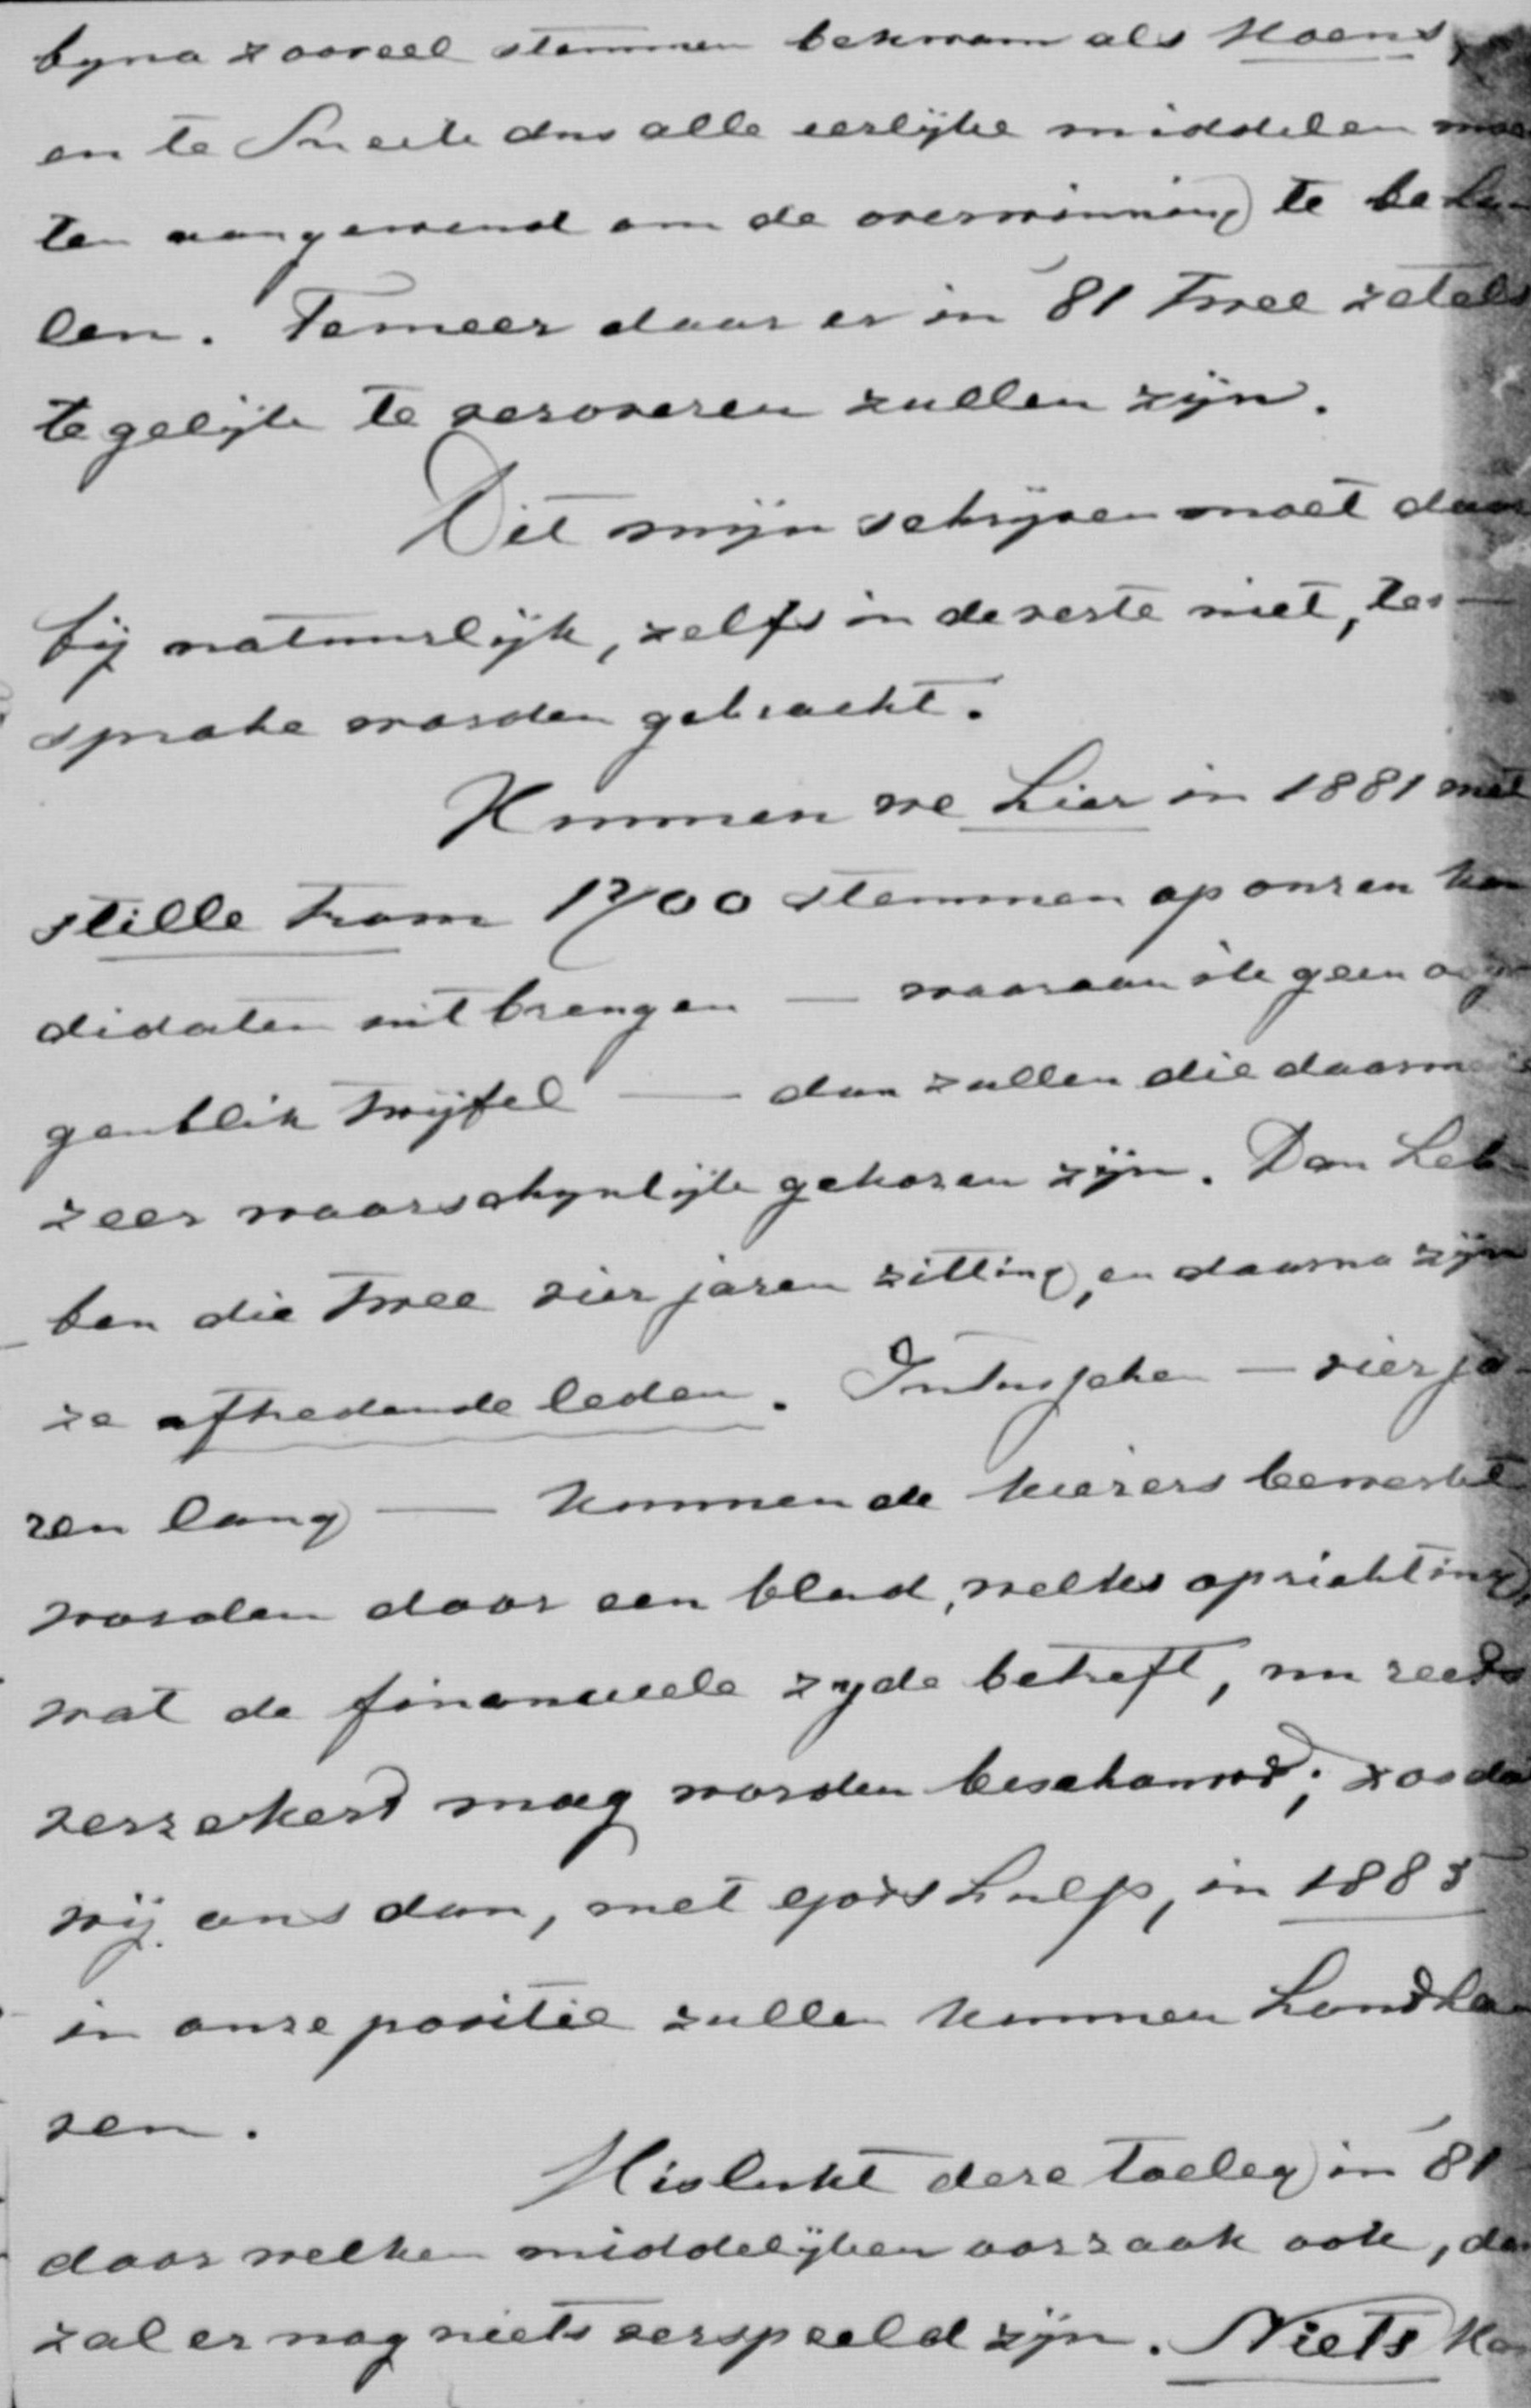 byna zooveel stemmen bekwam als Koens,
en te Sneek dus alle eerlijke middelen moe
ten aangewend om de overwinning te beha-
len. Temeer daar er in '81 twee zetels
tegelijk te veroveren zullen zijn.
Dit mijn schrijven moet daar
bij natuurlijk, zelfs in de verste niet, ter
sprake worden gebracht.
Kunnen we hier in 1881 met
stille trom 1700 stemmen op onzen kan
didaten uitbrengen — waaraan ik geen oog
genblik twijfel — dan zullen die daarmeê
zeer waarschynlijk gekozen zijn. Dan heb-
ben die twee vier jaren zitting, en daarna zijn
ze aftredende leden. Intusschen — vier ja-
ren lang — kunnen de kiezers bewerkt
worden door een blad, welks oprichting,
wat de financieele zyde betreft, nu reeds
verzekerd mag worden beschouwd; zoodat
wij ons dan, met Gods hulp, in 1885
in onze positie zullen kunnen handha
ven.
Mislukt deze toeleg in '81
door welken middelijken oorzaak ook, dan
zal er nog niets verspeeld zijn. Niets kan